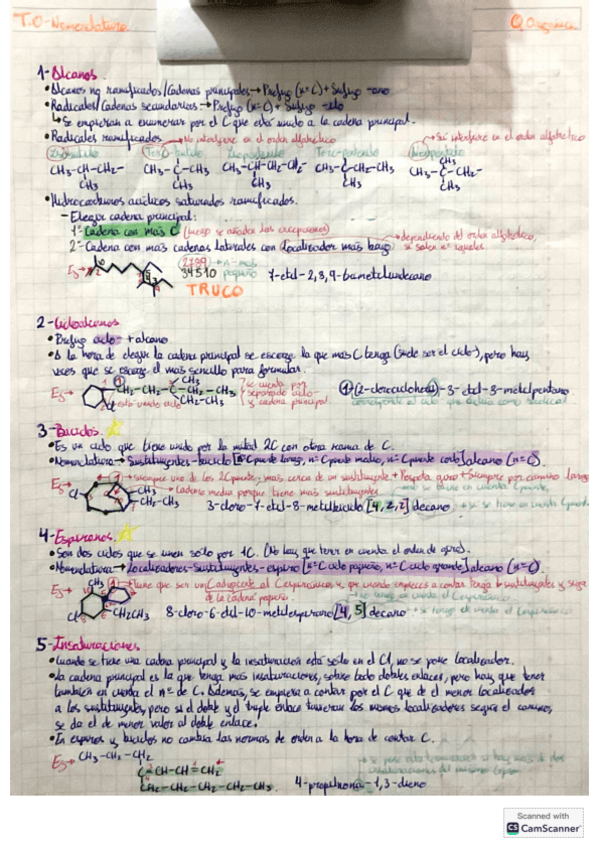 T.0-Nomenclatura
Q Orgánica
1-Alcanos.
• Alcanos no ramificados/Cadenas principales → Prefijo (nº C) + Sufijo -ano
• Radicales/Cadenas secundarias → Prefijo (nº C) + Sufijo -ilo
↳ Se empiezan a enumerar por el C que está unido a la cadena principal.
• Radicales ramificados → No interfiere en el orden alfabético
Sí interfiere en el orden alfabético
Isobutilo Terc-butilo Isopentilo Terc-pentilo Neopentilo
CH3-CH-CH2- CH3-C- CH3-CH-CH2-CH2- CH3-C-CH2-CH3 CH3-C-CH2-
CH3 CH3 CH3 CH3 CH3
• Hidrocarburos acíclicos saturados ramificados.
- Elegir cadena principal:
1º Cadena con más C (luego se añaden las excepciones)
2º Cadena con más cadenas laterales con localizador más bajo → dependiendo del orden alfabético,
si salen nº iguales.
Ej →
2789 → nº más
34510 pequeño
7-etil-2,3,9-trimetilundecano
TRUCO
2-Cicloalcanos
• Prefijo ciclo- + alcano
• A la hora de elegir la cadena principal se escoge la que más C tenga (suele ser el ciclo-), pero hay
veces que se escoge el más sencillo para formular.
Ej → CH2-CH2-C-CH2-CH3
CH3
CH2-CH3
se cuenta por
separado ciclo
y cadena principal
3-etil-3-metilpentano.
3-Biciclos.
• Es un ciclo que tiene unido por la mitad 2C con otra rama de C.
• Nomenclatura → Sustituyentes-biciclo[nº C puente largo, nº C puente medio, nº C puente corto]alcano (nº C).
Ej → Siempre uno de los 2C puente, más cerca de un sustituyente + Respeta giro + siempre por camino largo
Cadena media porque tiene más sustituyentes
Cl CH3
CH2-CH3
3-cloro-7-etil-8-metilbiciclo [4,2,2] decano
4-Espiranos.
• Son dos ciclos que se unen solo por 1C. (No hay que tener en cuenta el orden de giro).
• Nomenclatura → Localizadores-Sustituyentes-espiro[nº C ciclo pequeño, nº C ciclo grande]alcano (nº C).
Ej → CH3
de la cadena pequeña.
Cl CH2CH3 8-cloro-6-etil-10-metilespirano [4,5] decano
5-Insaturaciones.
• Cuando se tiene una cadena principal y la insaturación está solo en el C1, no se pone localizador.
• La cadena principal es la que tenga más insaturaciones, sobre todo dobles enlaces, pero hay que tener
también en cuenta el nº de C. Además, se empieza a contar por el C que dé el menor localizador
a los sustituyentes, pero si el doble y el triple enlace tuvieran los mismos localizadores según el camino,
se da el de menor valor al doble enlace.
• En espiros y biciclos no cambia las normas de orden a la hora de contar C.
Ej → CH3-CH2-CH2
C=CH-CH=CH2
CH2-CH2-CH2-CH2-CH3
4-propilnona-1,3-dieno
Scanned with
CS CamScanner